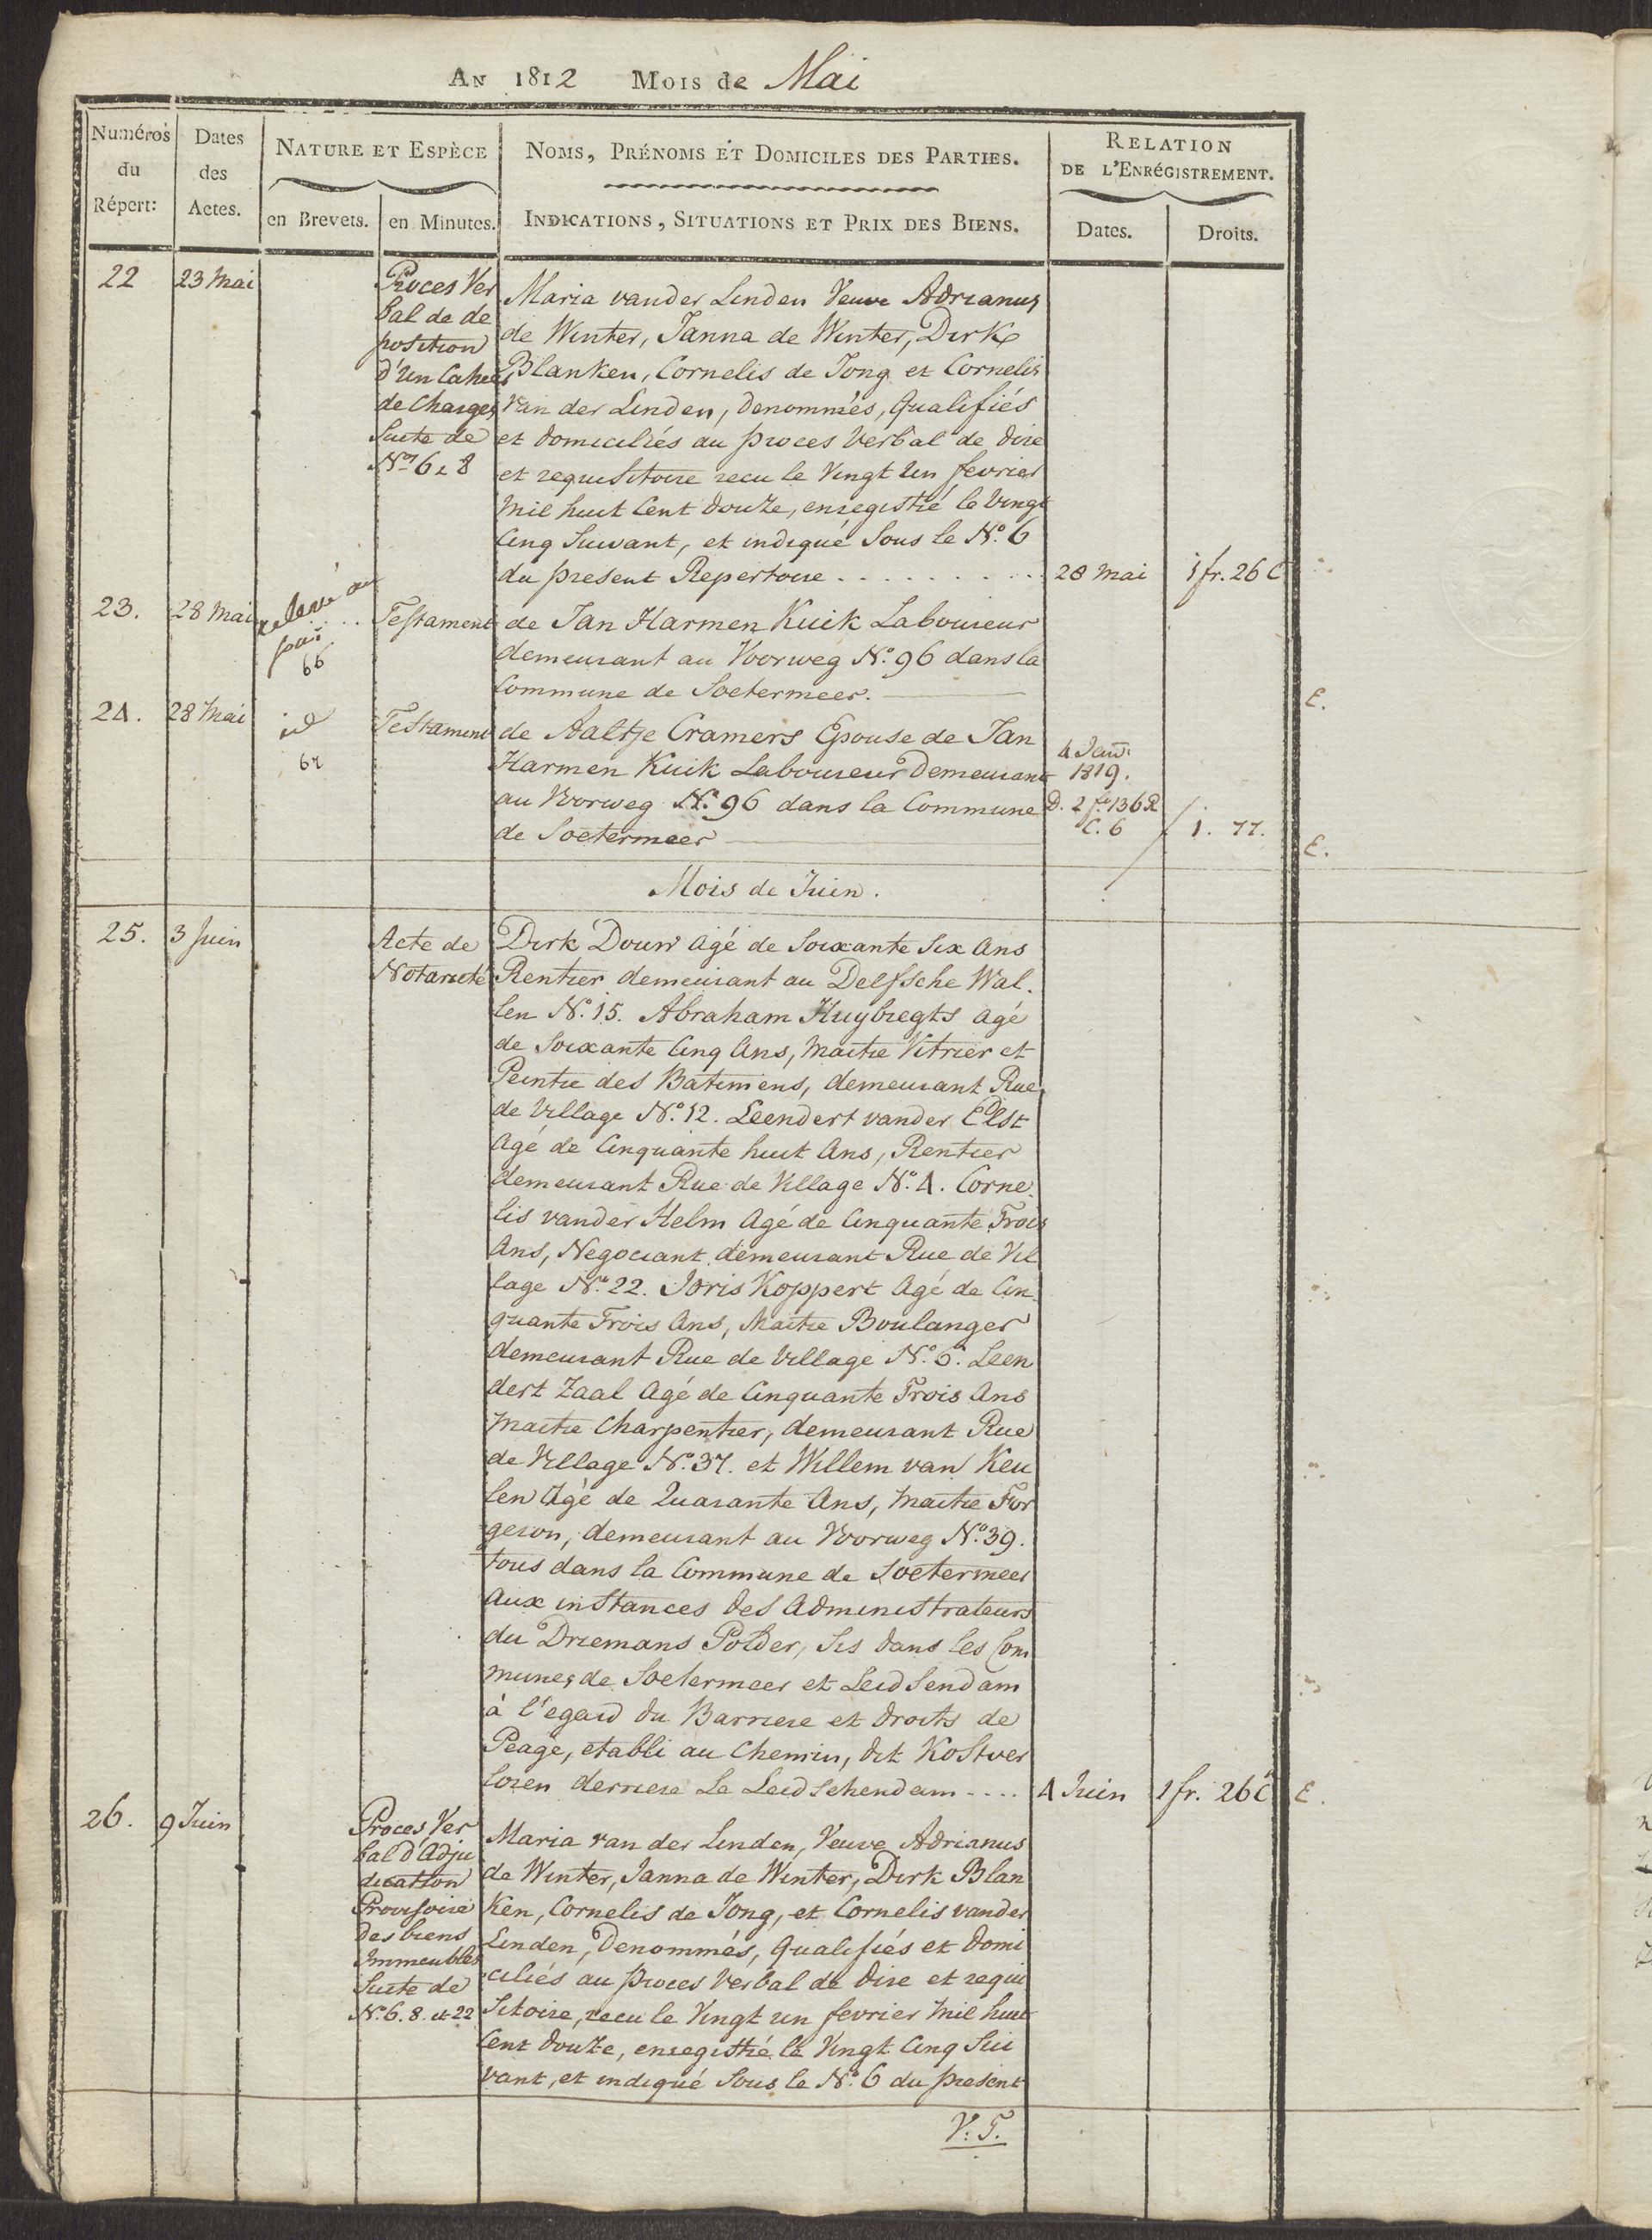 An 1812 Mois de Mai
Numéros du Répert:
Dates des Actes.
Nature et Espèce
en Brevets.
en Minutes.
Noms, Prénoms et Domiciles des Parties.
Indications, Situations et Prix des Biens.
Relation de l'Enrégistrement.
Dates.
Droits.
22
23 Mai
Proces Ver
bal de de
position
d'un Cahier
de Charges
Suite de
Nos 6 & 8
Maria vander Linden Veuve Adrianus
de Winter, Janna de Winter, Dirk
Blanken, Cornelis de Jong et Cornelis
van der Linden, denommés, qualifiés
et domiciliés au proces verbal de dire
et requisitoire recu le Vingt un fevrier
mil huit Cent douze, enregistré le Vingt
Cinq Suivant, et indiqué Sous le No. 6
du present Repertoire . . . . . . . . . .
28 Mai
1 fr. 26 C
23.
28 Mai
66
Testament
de Jan Harmen Kuik Laboureur
demeurant au Voorweg No. 96 dans la
Commune de Soetermeer.
E.
24.
28 Mai
id
67
Testament
de Aaltje Cramers Epouse de Jan
Harmen Kuik Laboureur demeurant
au Voorweg No. 96 dans la Commune
de Soetermeer
4 Janr
1819.
D. 2 fo 136 R
C. 6
1. 77.
E.
Mois de Juin.
25.
3 Juin
Acte de
Notarieté
Dirk Douw Agé de Soixante Six Ans
Rentier demeurant au Delfsche Wal.
len No. 15. Abraham Huybregts Agé
de Soixante Cinq Ans, Maitre Vitrier et
Peintre des Batimens, demeurant Rue
de Village No. 12. Leendert vander Elst
Agé de Cinquante huit Ans, Rentier
demeurant Rue de Village No. 4. Corne.
lis vander Helm Agé de Cinquante Trois
Ans, Negociant demeurant Rue de Vil
lage No. 22. Joris Koppert Agé de Cin
quante Trois Ans, Maitre Boulanger
demeurant Rue de Village No. 6. Leen
dert Zaal Agé de Cinquante Trois Ans
Maitre Charpentier, demeurant Rue
de Village No. 37. et Willem van Keu
len Agé de Quarante Ans, Maitre For
geron, demeurant au Voorweg No. 39.
tous dans la Commune de Soetermeer
Aux instances des Administrateurs
du Driemans Polder, sis dans les Com
munes de Soetermeer et Leidsendam
à l'egard du Barriere et droits de
Peage, etabli au Chemin, dit Kostver
loren derriere Le Leidschendam ....
4 Juin
1 fr. 26 C
E.
26.
9 Juin
Proces Ver
bal d'Adju
dication
Provisoire
des biens
Immeubles
Suite de
No. 6. 8. et 22
Maria van der Linden, Veuve Adrianus
de Winter, Janna de Winter, Dirk Blan
ken, Cornelis de Jong, et Cornelis vander
Linden, Denommés, qualifiés et domi
ciliés au proces verbal de dire et requi
sitoire, recu le Vingt un fevrier mil huit
Cent douze, enregistré le Vingt Cinq Sui
vant, et indiqué Sous le No. 6 du present
V. T.